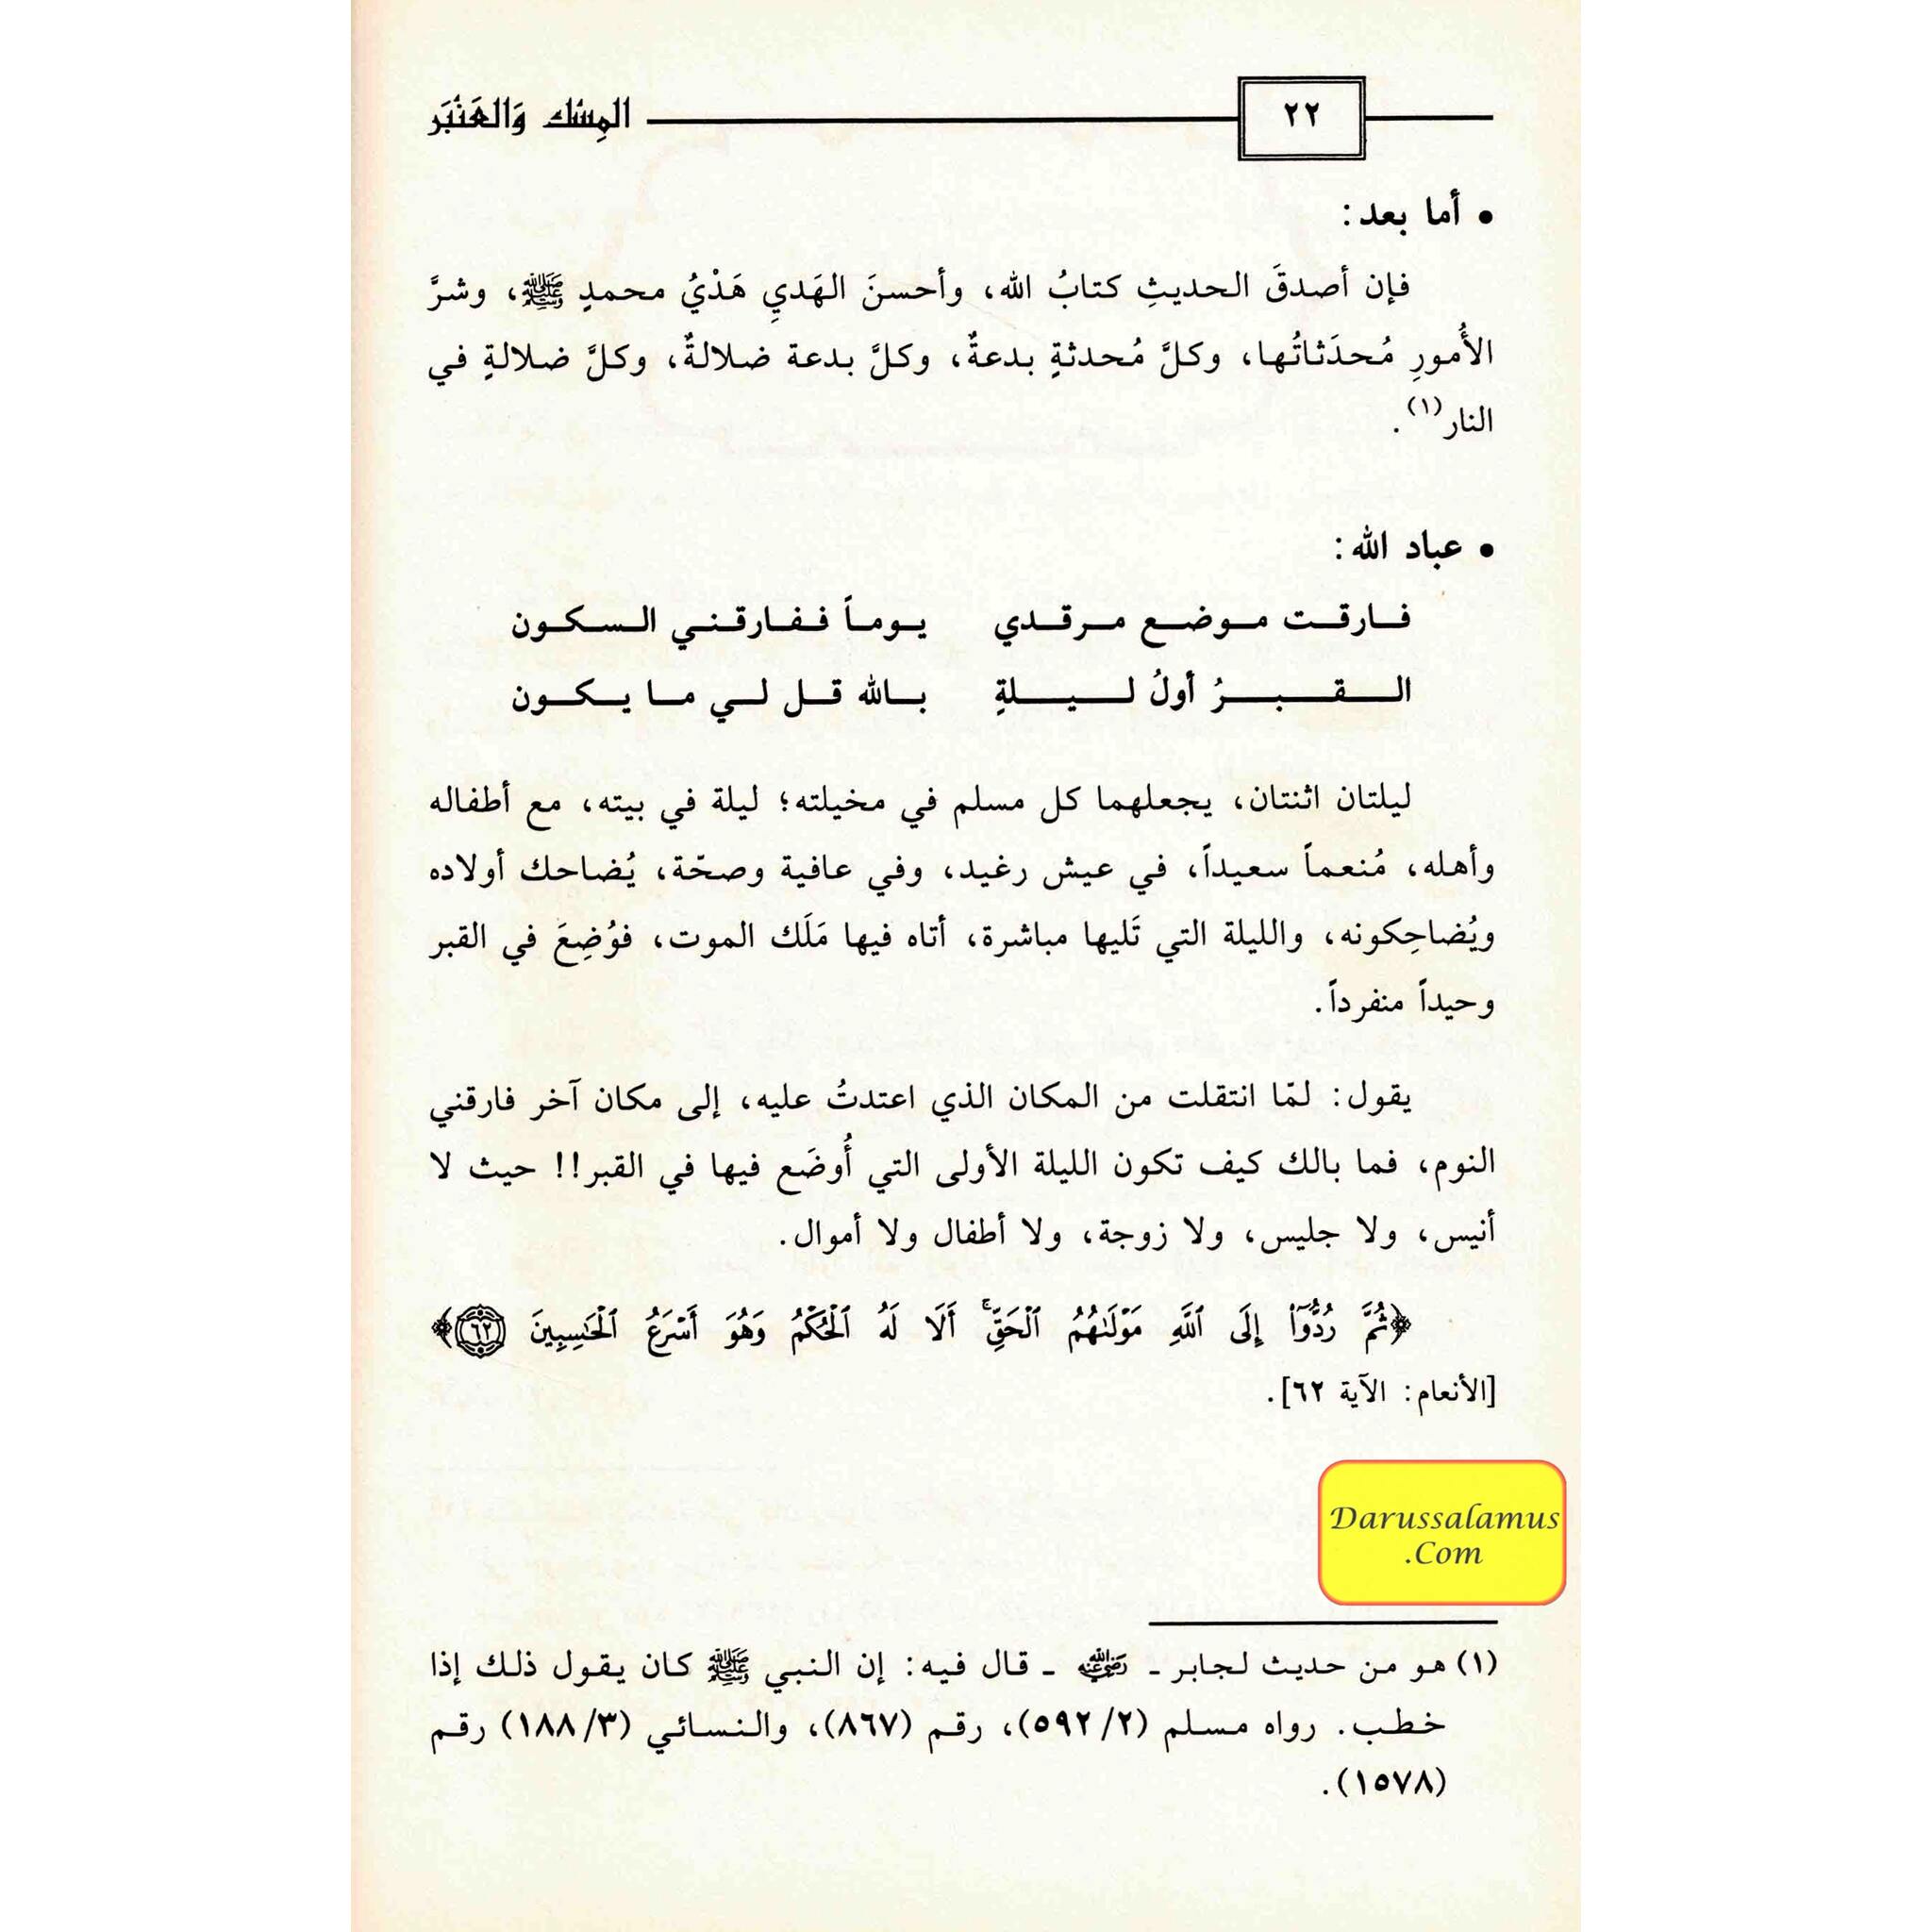 ٢٢
المِسْك وَالعَنْبَر
• أما بعد:
فإن أصدقَ الحديثِ كتابُ الله، وأحسنَ الهَديِ هَدْيُ محمدٍ ﷺ، وشرَّ
الأُمورِ مُحدَثاتُها، وكلَّ مُحدثةٍ بدعةٌ، وكلَّ بدعة ضلالةٌ، وكلَّ ضلالةٍ في
النار(١).
• عباد الله:
فارقت موضع مرقدي يوماً ففارقني السكون
القبرُ أولُ ليلةٍ بالله قل لي ما يكون
ليلتان اثنتان، يجعلهما كل مسلم في مخيلته؛ ليلة في بيته، مع أطفاله
وأهله، مُنعماً سعيداً، في عيش رغيد، وفي عافية وصحّة، يُضاحك أولاده
ويُضاحِكونه، والليلة التي تَليها مباشرة، أتاه فيها مَلَك الموت، فوُضِعَ في القبر
وحيداً منفرداً.
يقول: لمّا انتقلت من المكان الذي اعتدتُ عليه، إلى مكان آخر فارقني
النوم، فما بالك كيف تكون الليلة الأولى التي أُوضَع فيها في القبر!! حيث لا
أنيس، ولا جليس، ولا زوجة، ولا أطفال ولا أموال.
﴿ثُمَّ رُدُّوٓاْ إِلَى ٱللَّهِ مَوْلَىٰهُمُ ٱلْحَقِّ ۚ أَلَا لَهُ ٱلْحُكْمُ وَهُوَ أَسْرَعُ ٱلْحَٰسِبِينَ ٦٢﴾
[الأنعام: الآية ٦٢].
Darussalamus
.Com
(١) هو من حديث لجابر ـ رضي الله عنه ـ قال فيه: إن النبي ﷺ كان يقول ذلك إذا
خطب. رواه مسلم (٥٩٢/٢)، رقم (٨٦٧)، والنسائي (١٨٨/٣) رقم
(١٥٧٨).